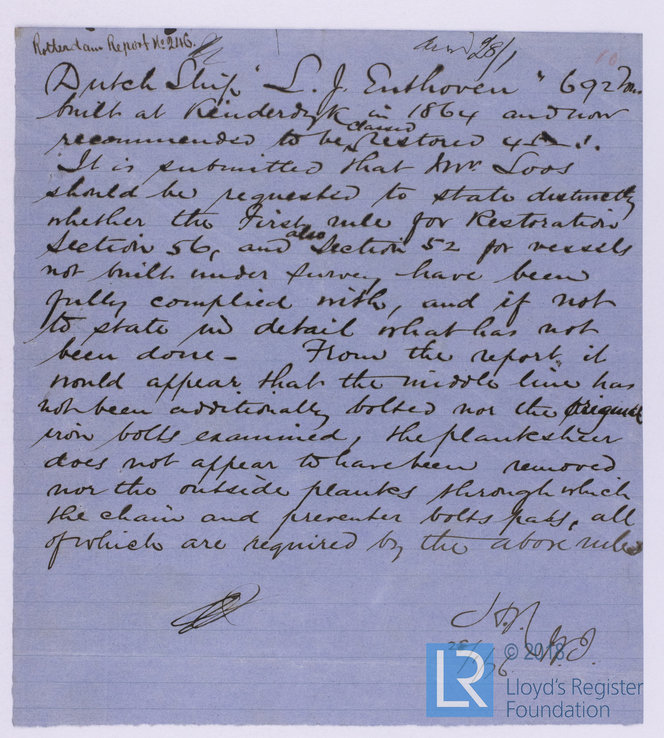 Rotterdam Report No 246.
28/1
Dutch Ship "L. J. Enthoven" 692 Tns
built at Kinderdyk in 1864 and now
recommended to be classed Restored 4
It is submitted that Mr. Loos
should be requested to state distinctly
whether the First rule for Restoration
Section 56, and also Section 52 for vessels
not built under survey have been
fully complied with, and if not
to state in detail what has not
been done - From the report, it
would appear that the middle line has
not been additionally bolted nor the original
iron bolts examined, the planksheer
does not appear to have been removed
nor the outside planks through which
the chain and preventer bolts pass, all
of which are required by the above rules
28/1/
© 2018
LR
Lloyd's Register
Foundation